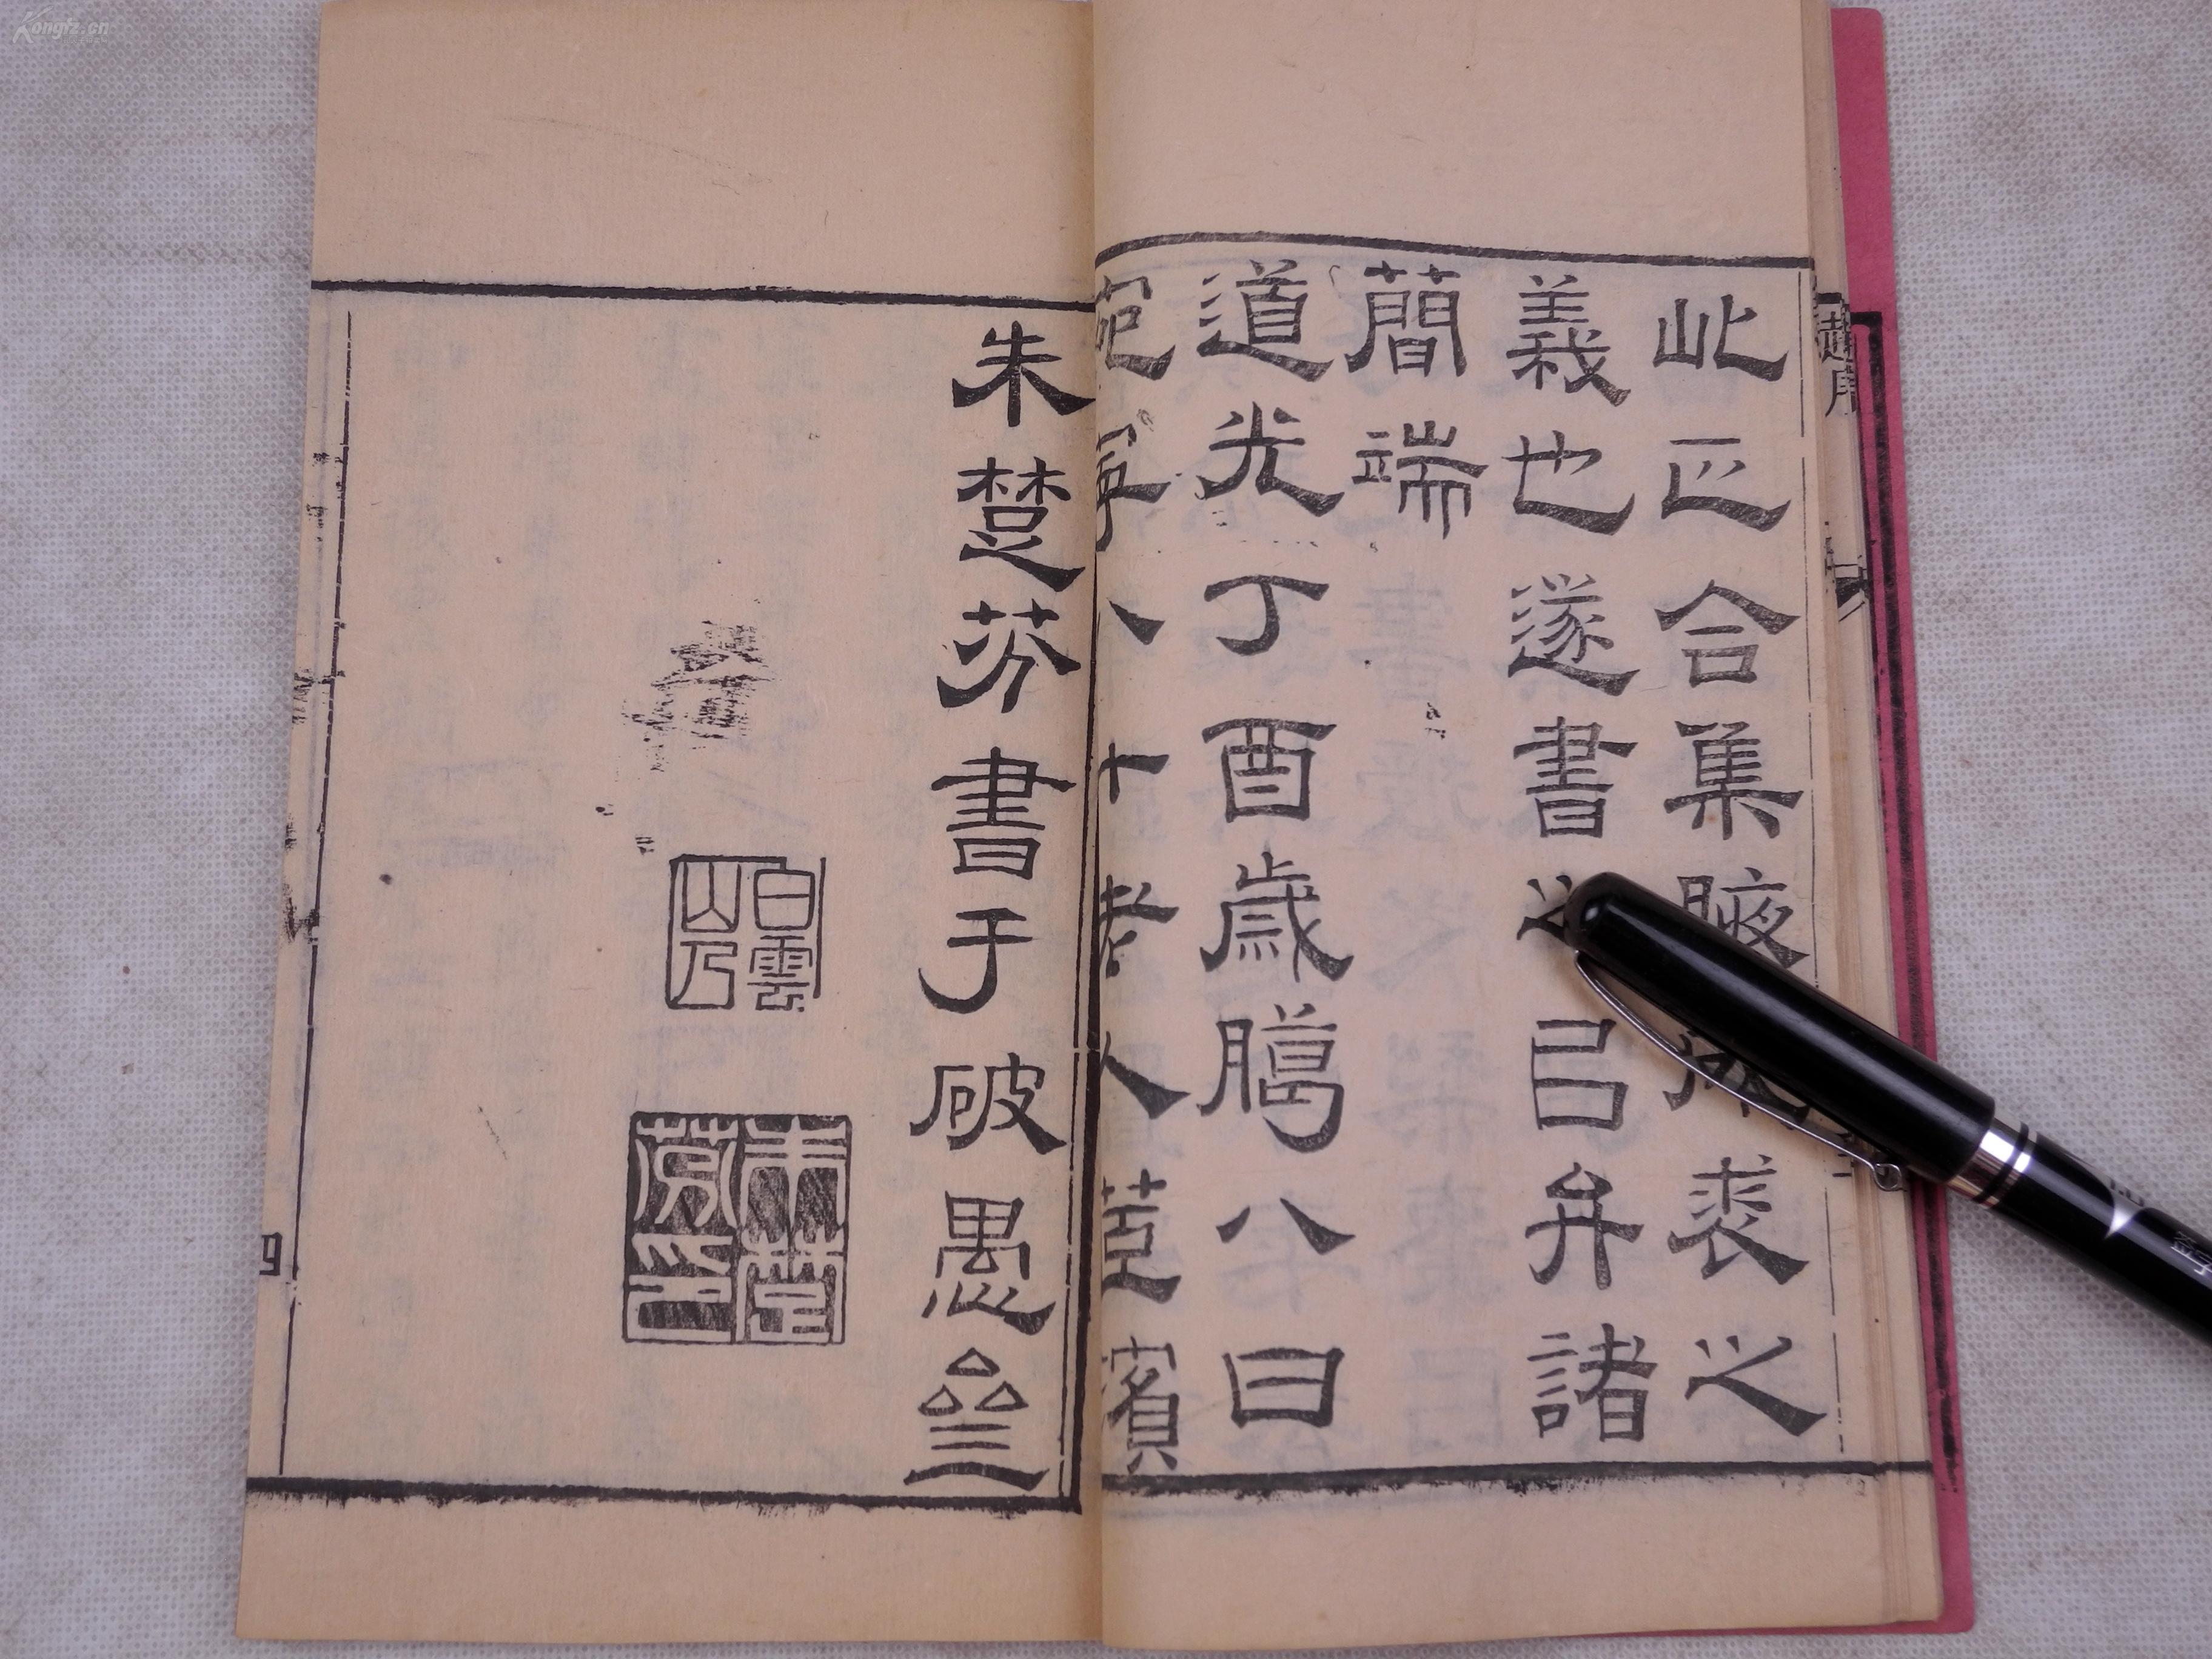 Kongfz.cn
此正合集腋成裘之
義也遂書之㠯弁諸
簡端
道光丁酉歲臈八日
宛寧八十老人茝濱
朱楚芬書于破愚
白雲山
朱楚芬印
四